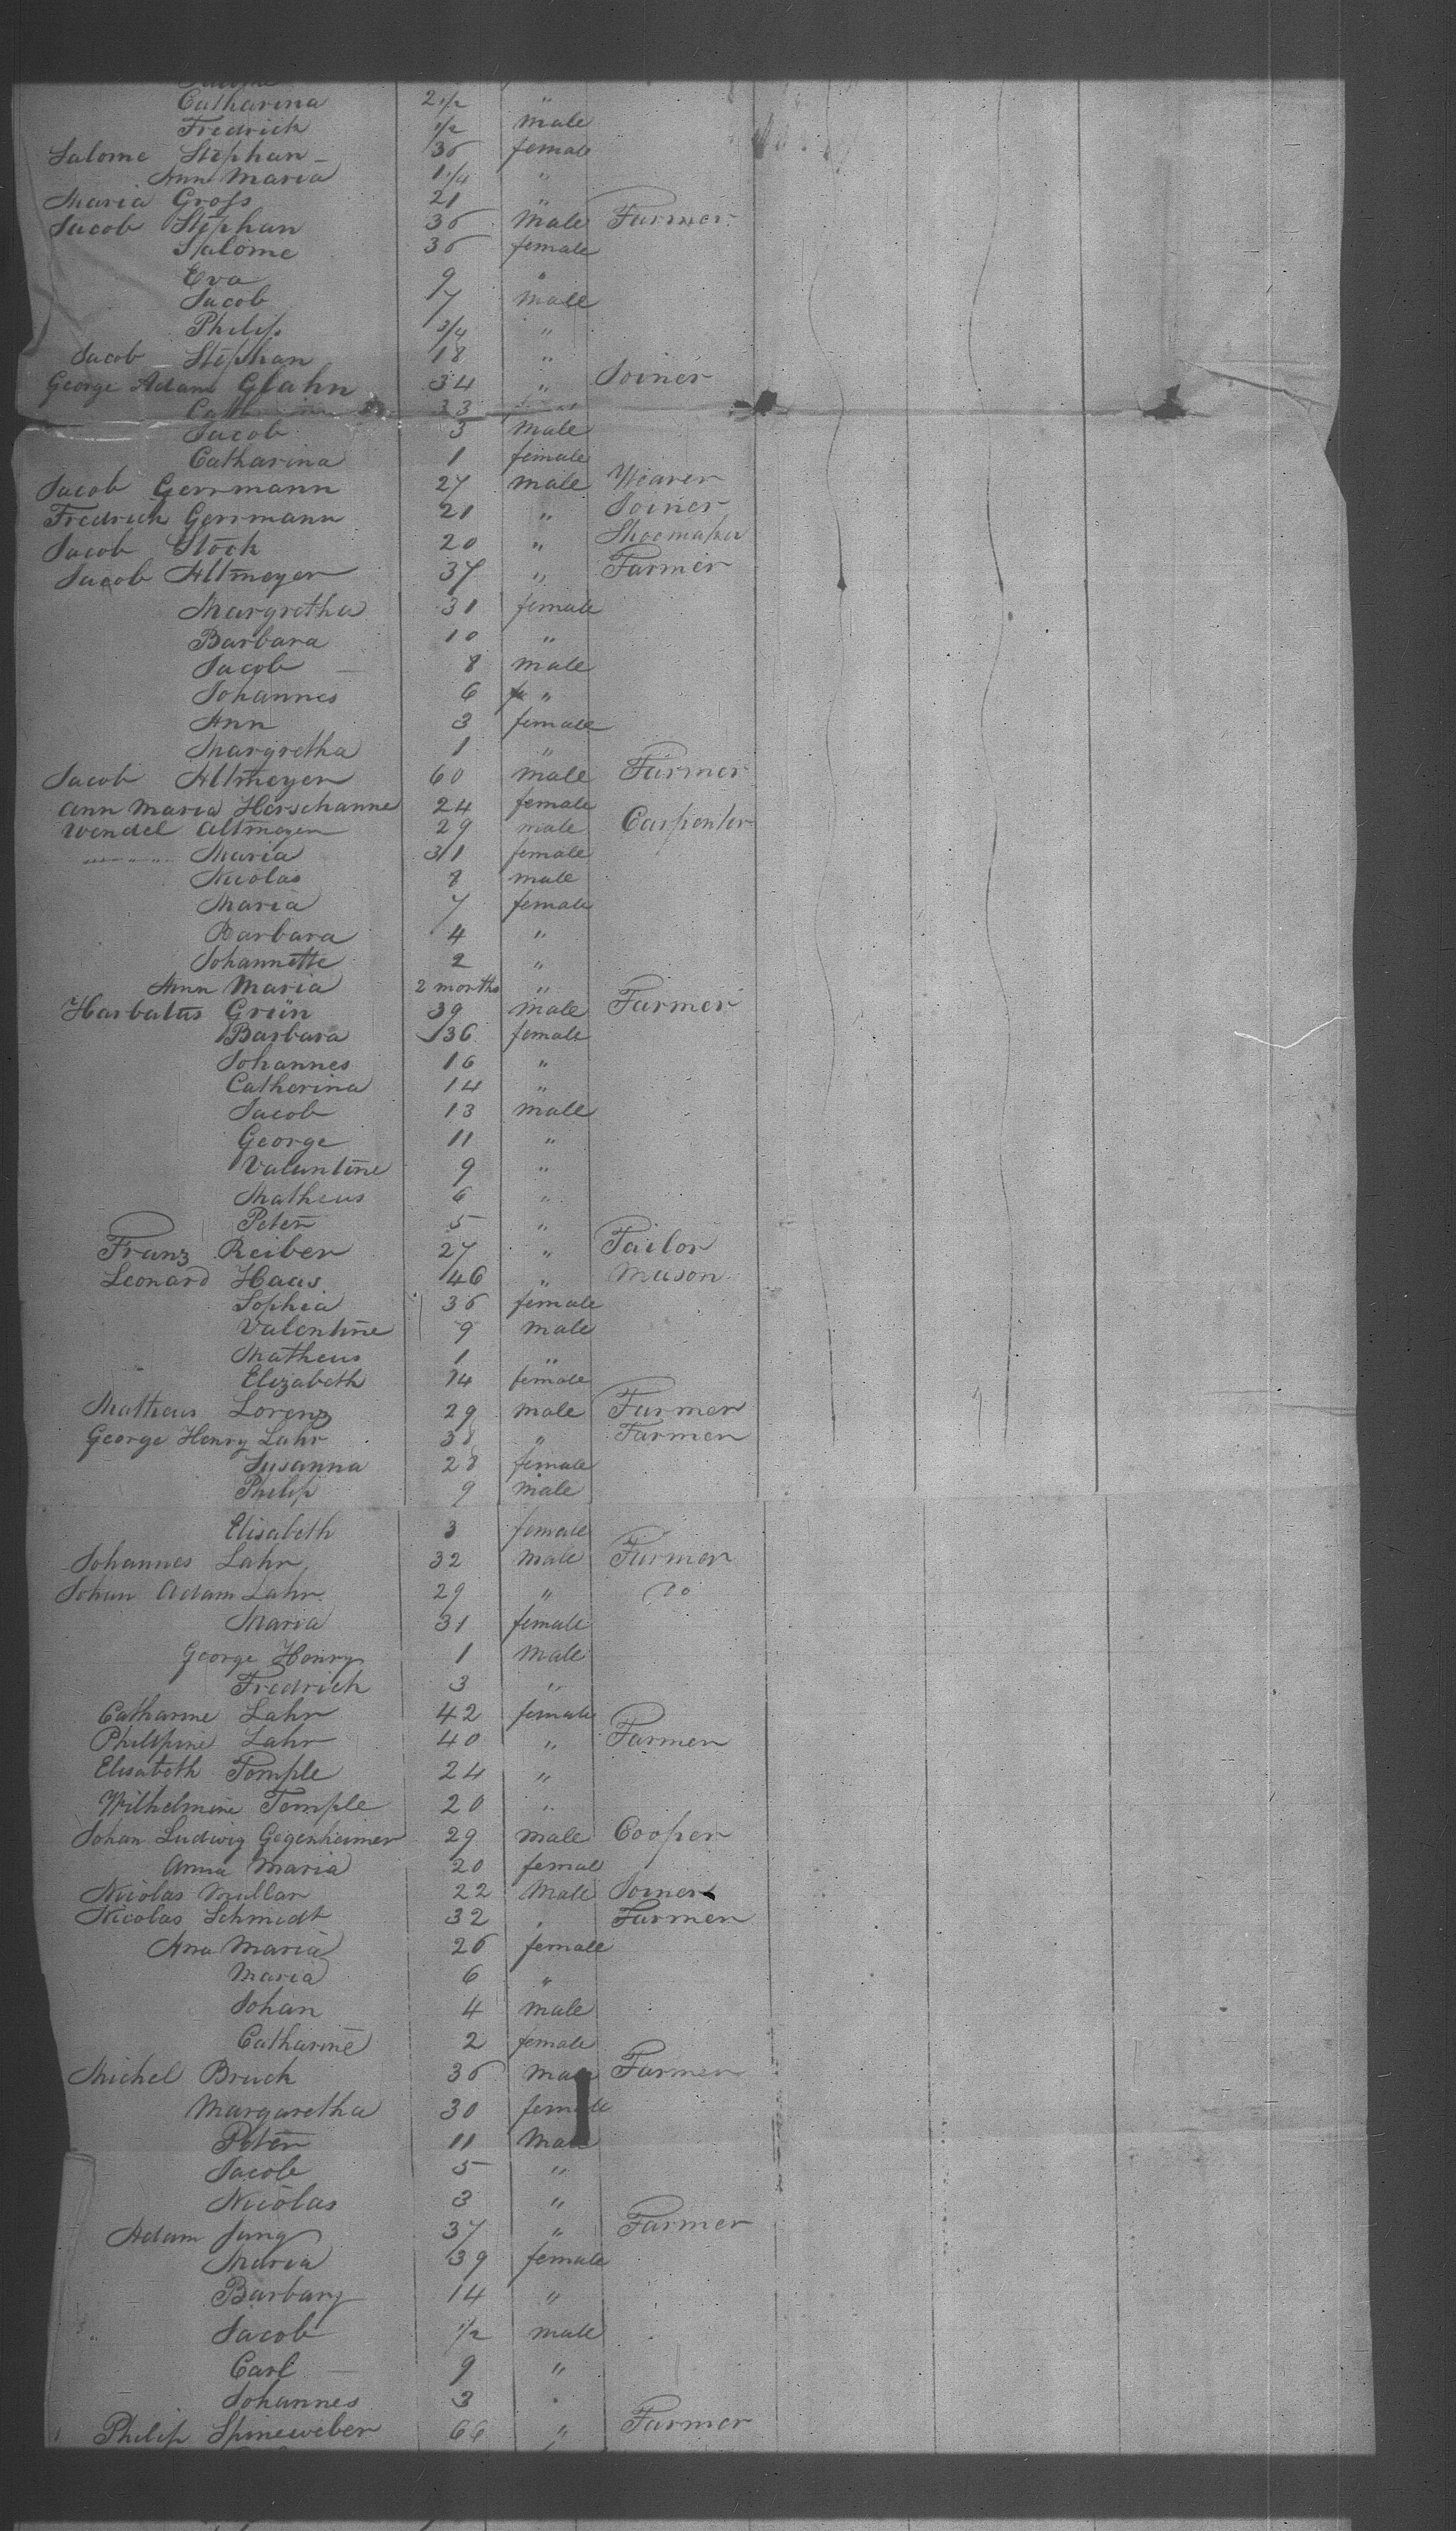 Catharina 2 1/2 "
Fredrich 1/2 male
Salome Stephan 36 female
Ann Maria 1 1/4 "
Maria Gross 21 "
Jacob Stephan 36 Male Farmer
Salome 36 female
Eva 9 "
Jacob 7 male
Philip 3/4 "
Jacob Stephan 18 "
George Adam Glahn 34 " Joiner
33 "
Jacob 3 male
Catharina 1 female
Jacob Gerrmann 27 male Weaver
Fredrich Gerrmann 21 " Joiner
Jacob Stock 20 " Shoemaker
Jacob Altmeyer 37 " Farmer
Margretha 31 female
Barbara 10 "
Jacob 8 male
Johannes 6 "
Ann 3 female
Margretha 1 "
Jacob Altmeyer 60 male Farmer
Ann Maria Herschanne 24 female
Wendel Altmeyer 29 male Carpenter
" " Maria 31 female
Nicolas 8 male
Maria 7 female
Barbara 4 "
Johannette 2 "
Ann Maria 2 months "
Harbatus Grün 39 male Farmer
Barbara 36 female
Johannes 16 "
Catherina 14 "
Jacob 13 male
George 11 "
Valentine 9 "
Matheus 6 "
Peter 5 "
Franz Reiber 27 " Tailor
Leonard Haas 46 " Mason
Sophia 36 female
Valentine 9 male
Matheus 1 "
Elizabeth 14 female
Matheus Lorenz 29 male Farmer
George Henry Lahr 38 " Farmer
Susanna 28 female
Philip 9 male
Elisabeth 3 female
Johannes Lahr 32 male Farmer
Johan Adam Lahr 29 " Do
Maria 31 female
George Henry 1 Male
Fredrich 3 "
Catharine Lahr 42 female
Philipine Lahr 40 " Farmer
Elisabeth Tomple 24 "
Wilhelmine Tomple 20 "
Johan Ludwig Gegenheimer 29 male Cooper
Anna Maria 20 female
Nicolas Mullar 22 Male Joiner
Nicolas Schmidt 32 " Farmer
Ana Maria 26 female
Maria 6 "
Johan 4 male
Catharine 2 female
Michel Bruch 36 male Farmer
Margaretha 30 female
Peter 11 Male
Jacob 5 "
Nicolas 3 "
Adam Jung 37 " Farmer
Maria 39 female
Barbary 14 "
Jacob 1/2 male
Carl 9 "
Johannes 3 "
Philip Spineweber 66 " Farmer